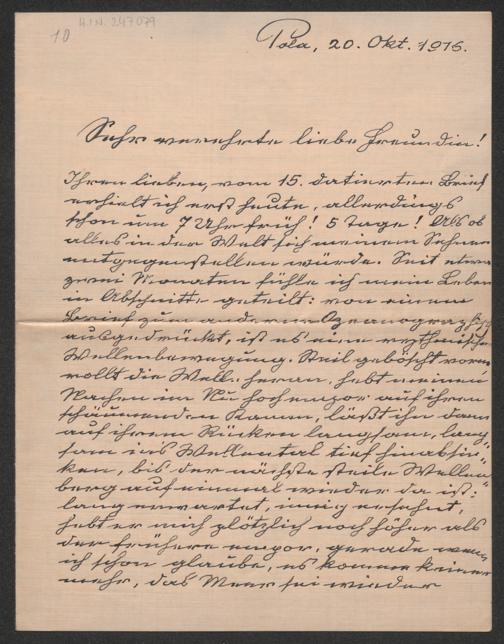 10 H.I.N. 247079
Pola, 20. Okt. 1916.
Sehr verehrte liebe Freundin!
Ihren lieben, vom 15. datierten Brief
erhielt ich erst heute, allerdings
schon um 7 Uhr früh! 5 Tage! Als ob
alles in der Welt sich meinem Sehnen
entgegenstellen würde. Seit etwa
zwei Monaten fühle ich mein Leben
in Abschnitte geteilt: von einem
Brief zum anderen. Ozeanographisch
ausgedrückt, ist es eine rythmische
Wellenbewegung. Steil geböscht vorne
rollt die Welle heran, hebt meinen
Nachen im Nu hoch empor auf ihren
schäumenden Kamm, läßt ihn dann
auf ihrem Rücken langsam, lang-
sam ins Wellental tief hinabsin-
ken, bis der nächste steile Wellen-
berg auf einmal wieder da ist:
lang erwartet, innig ersehnt,
hebt er mich plötzlich noch höher als
der frühere empor, gerade wenn
ich schon glaube, es komme keiner
mehr, das Meer sei wieder